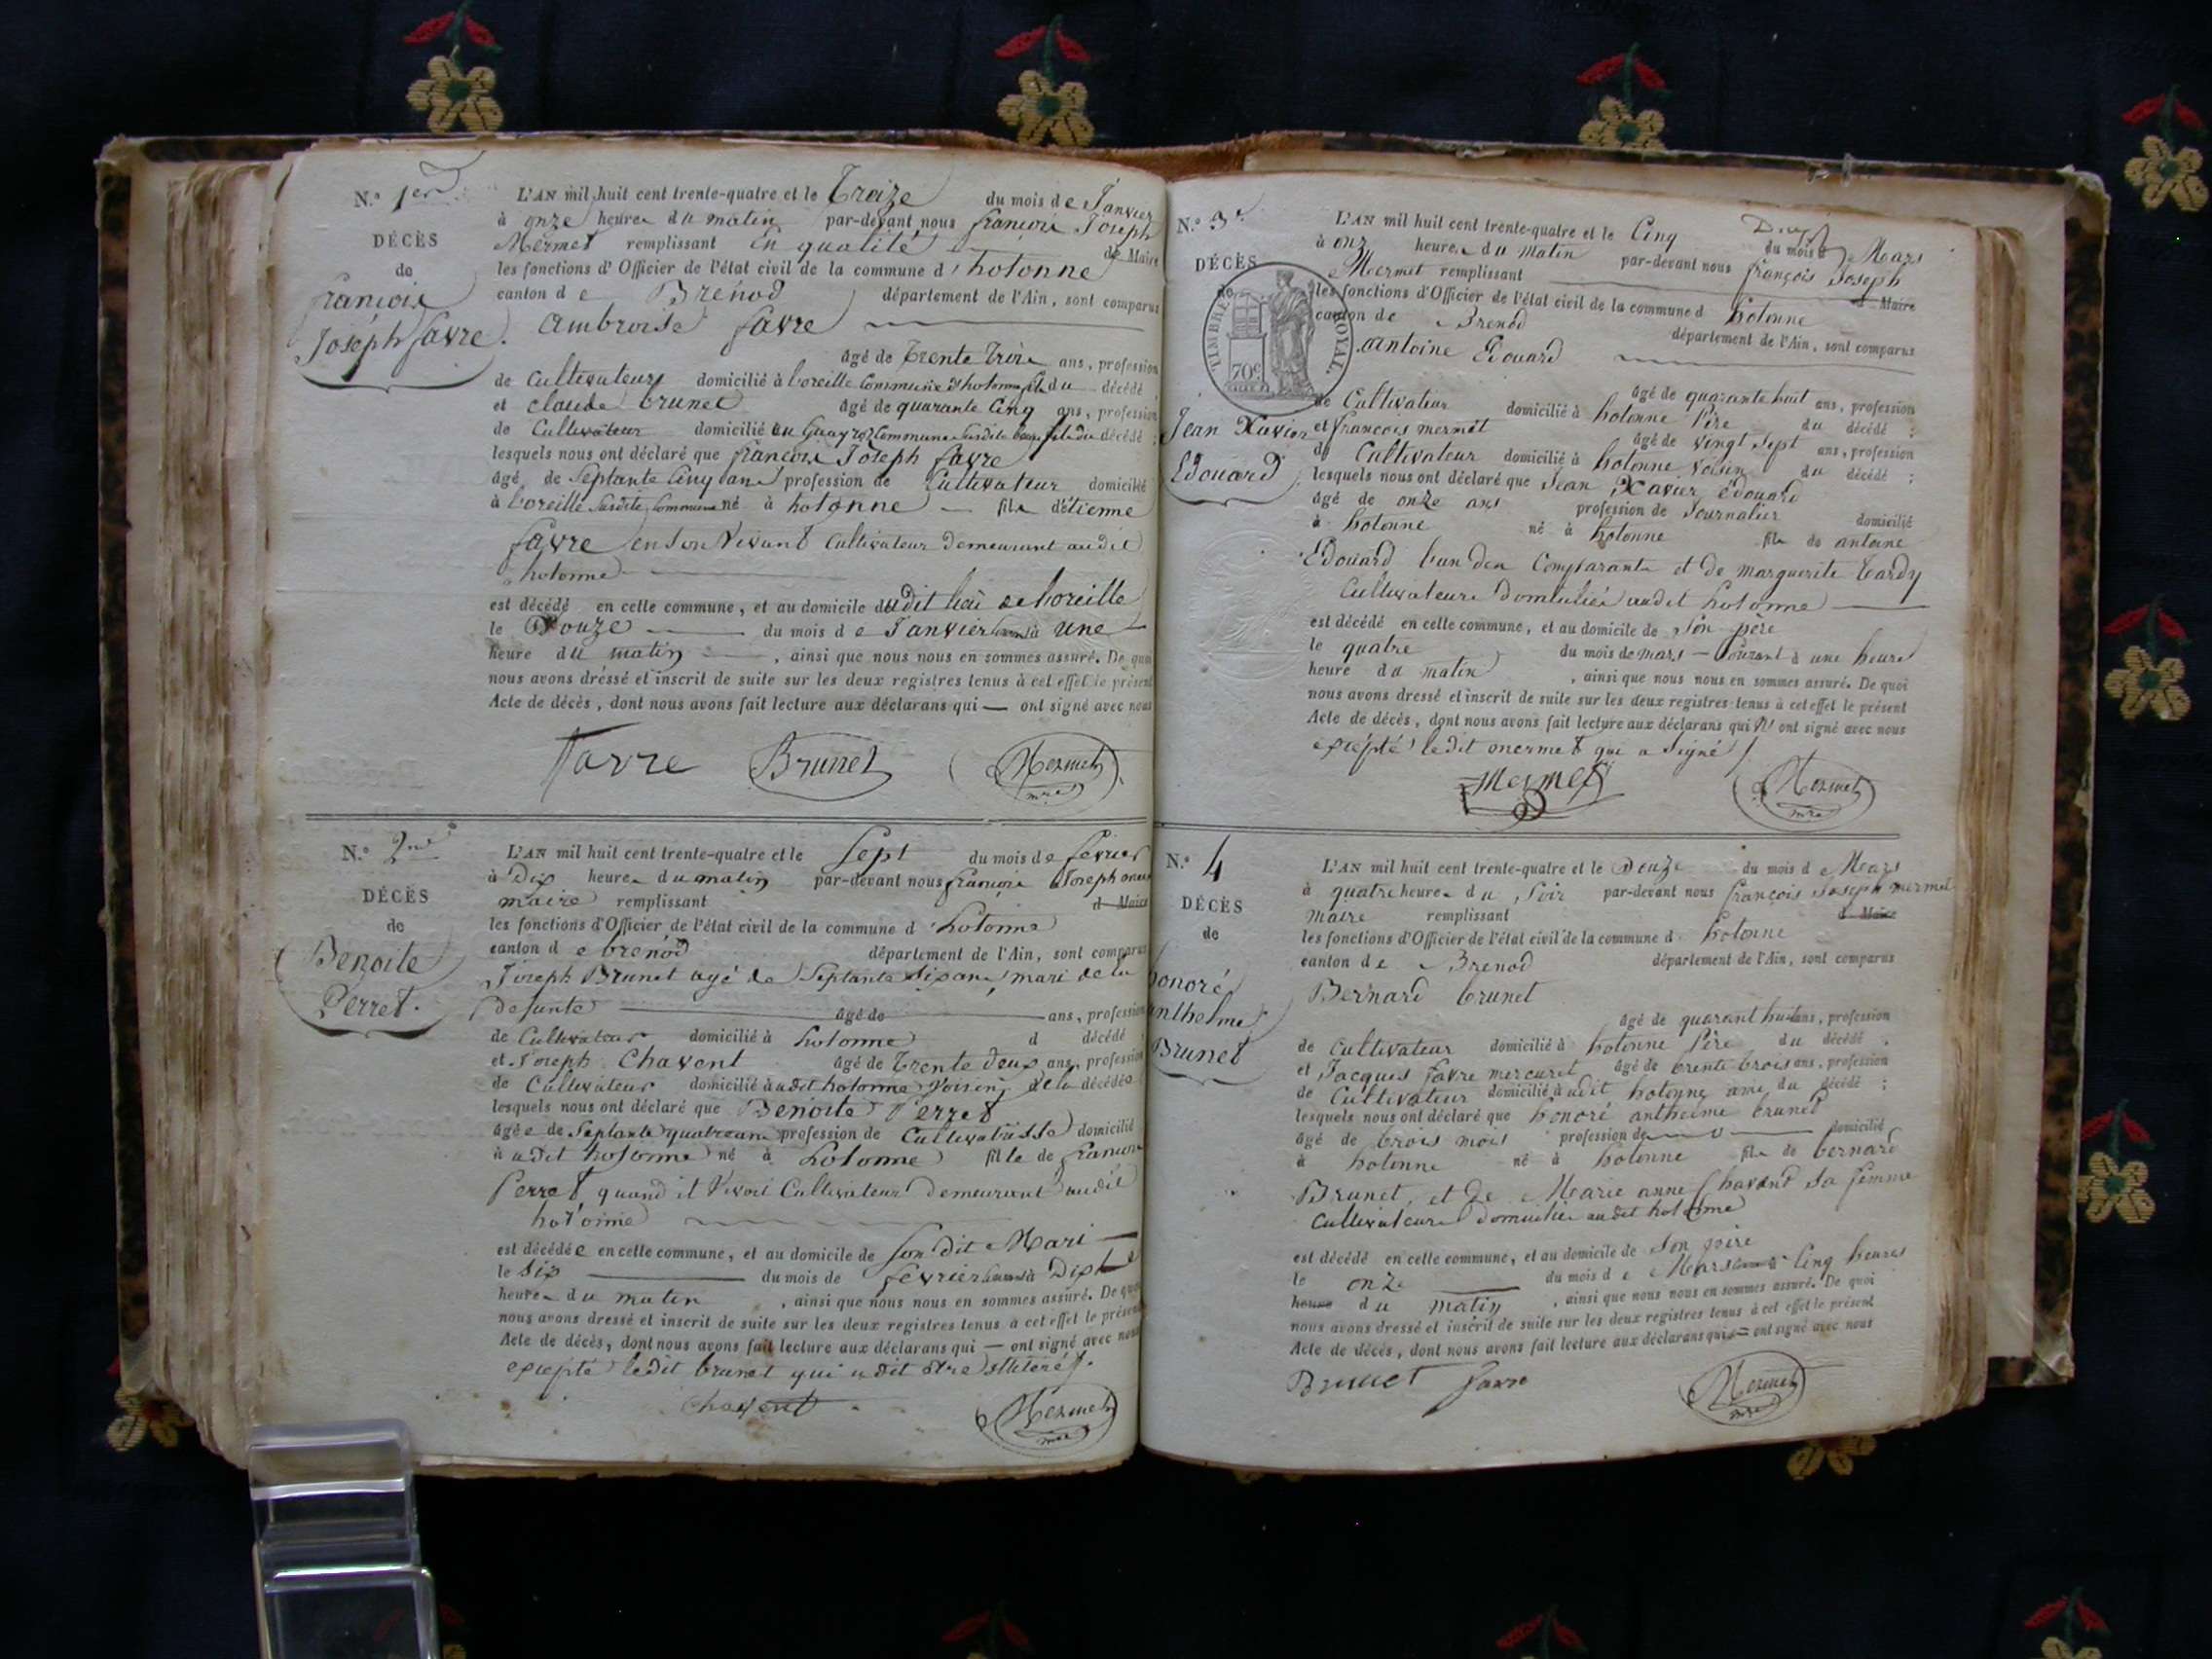 N.o 1er
DÉCÈS
de
françois
Joseph favre.
L'AN mil huit cent trente-quatre et le Treize du mois de Janvier
à onze heures du matin par-devant nous françois Joseph
Mermet remplissant en qualité de Maire
les fonctions d'Officier de l'état civil de la commune d'hotonne
canton de Brénod département de l'Ain, sont comparus
ambroise favre
âgé de trente trois ans, profession
de Cultivateur domicilié à Loreille Commune d'hotonne fils du décédé
et claude brunet âgé de quarante Cinq ans, profession
de Cultivateur domicilié Commune susdite du décédé ;
lesquels nous ont déclaré que françois Joseph favre
âgé de Septante Cinq ans profession de Cultivateur domicilié
à Loreille susdite Commune né à hotonne fils d'étienne
favre en son Vivant Cultivateur demeurant audit
hotonne
est décédé en cette commune, et au domicile dudit lieu de Loreille
le Douze du mois de Janvier courant à une
heure du matin, ainsi que nous nous en sommes assuré. De quoi
nous avons dressé et inscrit de suite sur les deux registres tenus à cet effet le présent
Acte de décès, dont nous avons fait lecture aux déclarans qui — ont signé avec nous
Favre Brunet Mermet
mre
N.o 2me
DÉCÈS
de
Benoite
Perret.
L'AN mil huit cent trente-quatre et le Sept du mois de fevrier
à Dix heures du matin par-devant nous françois Joseph
maire remplissant d Maire
les fonctions d'Officier de l'état civil de la commune d'hotonne
canton de brenod département de l'Ain, sont comparus
Joseph Brunet agé de Septante Six ans, mari de la
defunte âgé de ans, profession
de Cultivateur domicilié à hotonne d décédé
et Joseph Chavent âgé de Trente deux ans, profession
de Cultivateur domicilié audit hotonne Voisin de la décédée
lesquels nous ont déclaré que Benoite Perret
âgée de Septante quatre ans profession de Cultivatrisse domicilié
à udit hotonne né à hotonne fille de françois
Perret quand il Vivoit Cultivateur demeurant audit
hotonne
est décédée en cette commune, et au domicile de son dit Mari
le Six du mois de fevrier courant à Dix
heures du matin, ainsi que nous nous en sommes assuré. De quoi
nous avons dressé et inscrit de suite sur les deux registres tenus à cet effet le présent
Acte de décès, dont nous avons fait lecture aux déclarans qui — ont signé avec nous
excepté ledit brunet qui a dit être illitéré.
Chavent Mermet
mre
N.o 3e
DÉCÈS
de
TIMBRE ROYAL
70c
Jean Xavier
Edouard
L'AN mil huit cent trente-quatre et le Cinq du mois de Mars
à onz heures du matin par-devant nous françois Joseph
Mermet remplissant d Maire
les fonctions d'Officier de l'état civil de la commune d hotonne
canton de Brenod département de l'Ain, sont comparus
antoine Edouard
âgé de quarante huit ans, profession
de Cultivateur domicilié à hotonne Père du décédé ;
et francois mermet âgé de vingt Sept ans, profession
d Cultivateur domicilié à hotonne voisin du décédé ;
lesquels nous ont déclaré que Jean Xavier édouard
âgé de onze ans profession de Journalier domicilié
à hotonne né à hotonne fils de antoine
Edouard l'un des Comparants et de marguerite tardy
Cultivateurs Domiciliés audit hotonne
est décédé en cette commune, et au domicile de Son père
le quatre du mois de mars courant à une heure
heure du matin, ainsi que nous nous en sommes assuré. De quoi
nous avons dressé et inscrit de suite sur les deux registres tenus à cet effet le présent
Acte de décès, dont nous avons fait lecture aux déclarans qui n' ont signé avec nous
excépté ledit mermet qui a Signé
Mermet Mermet
mre
N.o 4
DÉCÈS
de
honoré
anthelme
Brunet
L'AN mil huit cent trente-quatre et le Douze du mois de Mars
à quatre heures du Soir par-devant nous françois Joseph mermet
maire remplissant d Maire
les fonctions d'Officier de l'état civil de la commune d hotonne
canton de Brenod département de l'Ain, sont comparus
Bernard brunet
âgé de quarant huit ans, profession
de Cultivateur domicilié à hotonne Père du décédé,
et Jacques favre mercuret âgé de trente trois ans, profession
de Cultivateur domicilié audit hotonne ami du décédé ;
lesquels nous ont déclaré que honoré anthelme brunet
âgé de trois mois profession de domicilié
à hotonne né à hotonne fils de bernard
Brunet, et de Marie anne Chavand sa femme
Cultivateurs domiciliés audit hotonne
est décédé en cette commune, et au domicile de Son père
le onze du mois de Mars courant à Cinq heures
heure du matin, ainsi que nous nous en sommes assuré. De quoi
nous avons dressé et inscrit de suite sur les deux registres tenus à cet effet le présent
Acte de décès, dont nous avons fait lecture aux déclarans qui = ont signé avec nous
Brunet favre Mermet
mre